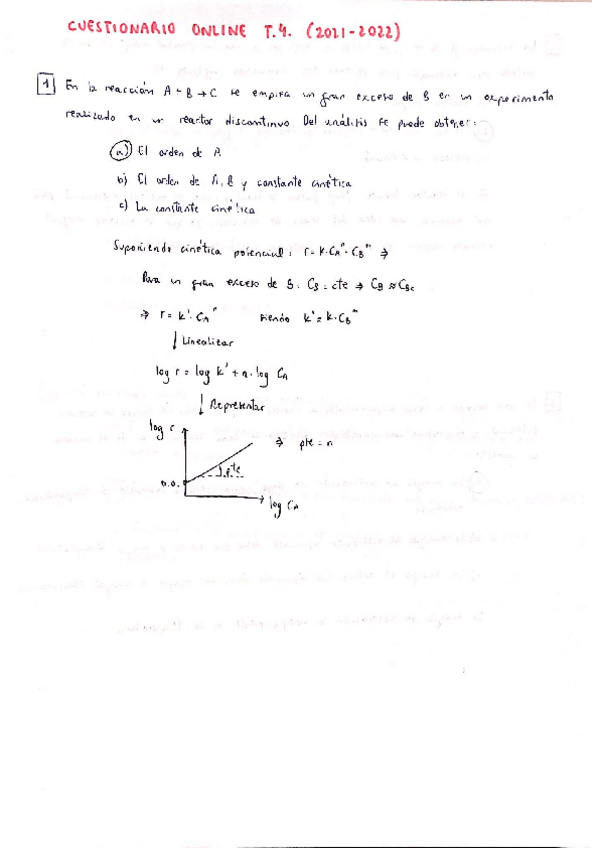 CUESTIONARIO ONLINE T.4. (2021-2022)
1 En la reacción A + B → C se emplea un gran exceso de B en un experimento
realizado en un reactor discontinuo. Del análisis se puede obtener:
a) El orden de A
b) El orden de A, B y constante cinética
c) La constante cinética
Suponiendo cinética potencial: r = k·C_A^n·C_B^m ⇒
Para un gran exceso de B: C_B = cte → C_B ≈ C_Bo
⇒ r = k'·C_A^n siendo k' = k·C_B^m
↓ Linealizar
log r = log k' + n·log C_A
↓ Representar
log r
⇒ pte = n
pte
o.o.
log C_A